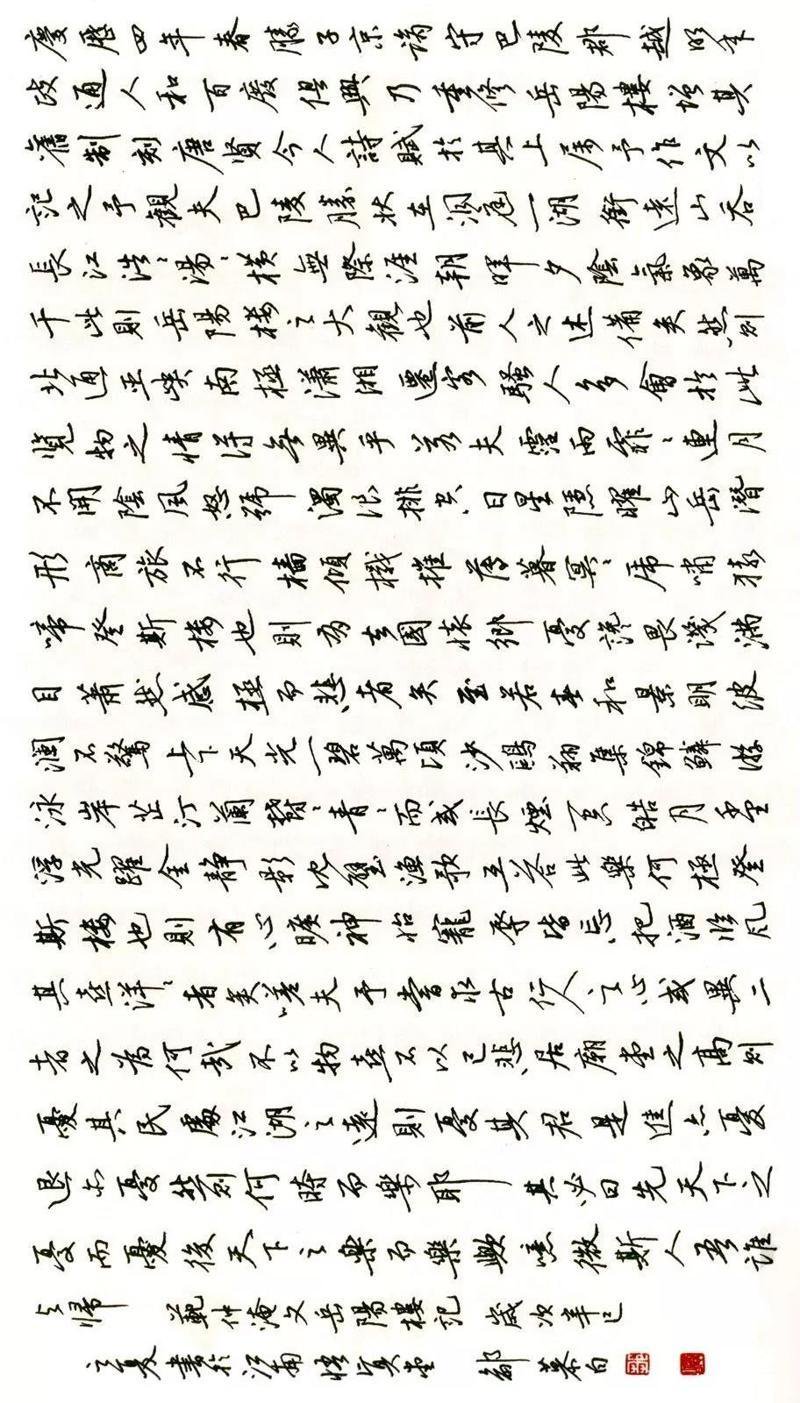 慶歷四年春滕子京謫守巴陵郡越明年
政通人和百廢俱興乃重修岳陽樓增其
舊制刻唐賢今人詩賦於其上属予作文以
記之予觀夫巴陵勝狀在洞庭一湖銜遠山吞
長江浩々湯々橫無際涯朝暉夕陰氣象萬
千此則岳陽樓之大觀也前人之述備矣然則
北通巫峽南極瀟湘遷客騷人多會於此
览物之情得無異乎若夫霪雨霏々連月
不開陰風怒號濁浪排空日星隱曜山岳潛
形商旅不行檣傾楫摧薄暮冥々虎嘯猿
啼登斯樓也則有去國懷鄉憂讒畏譏滿
目蕭然感極而悲者矣至若春和景明波
瀾不驚上下天光一碧萬頃沙鷗翔集錦鱗游
泳岸芷汀蘭鬱々青々而或長煙一空皓月千里
浮光躍金靜影沉璧漁歌互答此樂何極登
斯樓也則有心曠神怡寵辱皆忘把酒臨風
其喜洋々者矣嗟夫予嘗求古仁人之心或異二
者之為何哉不以物喜不以己悲居廟堂之高則
憂其民處江湖之遠則憂其君是進亦憂
退亦憂然則何時而樂耶其必曰先天下之
憂而憂後天下之樂而樂歟噫微斯人吾誰
與歸 範仲淹文岳陽樓記 歲次辛巳
之夏書於江南悟真堂 鄒慕白